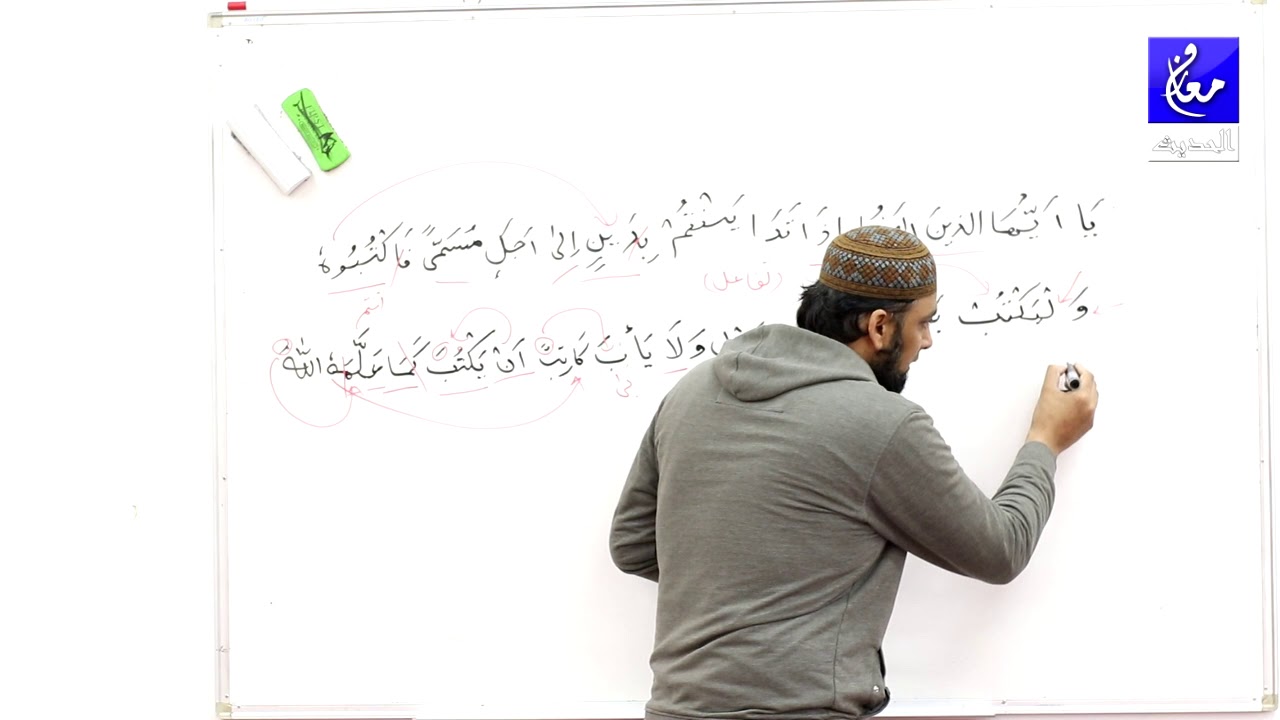 معارف
الحديث
يَا اَيُّهَا الذِينَ اٰمَنُوا اِذَا تَدَا يَنْتُمْ بِدَيْنٍ اِلىٰ اَجَلٍ مُسَمًّى فَاكْتُبُوهُ
(تفاعل)
وَلْيَكْتُبْ
وَلَا يَأْبَ كَاتِبٌ اَنْ يَكْتُبَ كَمَا عَلَّمَهُ اللّٰهُ